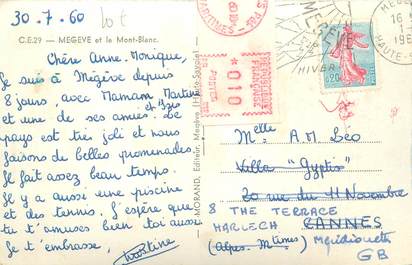 30-7-60 lot
C.E.29 — MEGÈVE et le Mont-Blanc.
Chère Anne-Monique,
Je suis à Megève depuis
8 jours, avec Maman Martine
et une de ses amies. Le
pays est très joli et nous
faisons de belles promenades.
Il fait assez beau temps.
Il y a aussi une piscine
et des tennis. J'espère que
tu t'amuses bien toi aussi
Je t'embrasse,
Martine
MORAND, Editeur, Megève (Haute-Savoie)
MARITIMES
REPUBLIQUE FRANCAISE
010
POSTES
MEGEVE
HIVER
0,20
MEGEVE
16
196
HAUTE-S
Melle A.M. Léo
Villa "Gyptis"
20 rue du 11 Novembre
8 THE TERRACE
HARLECH CANNES
(Alpes-Mtimes)
GB